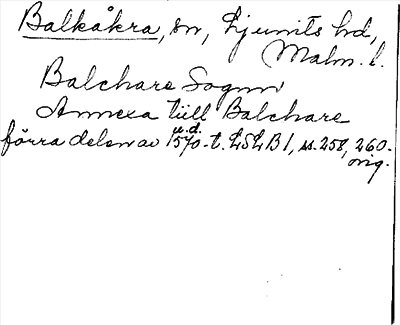 Balkåkra, sn, Ljunits hd,
Malm. l.
Balchare Sognn
Annexa tüll Balchare
u.d.
förra delen av 1570-t. LSLB1, s. 258, 260.
orig.